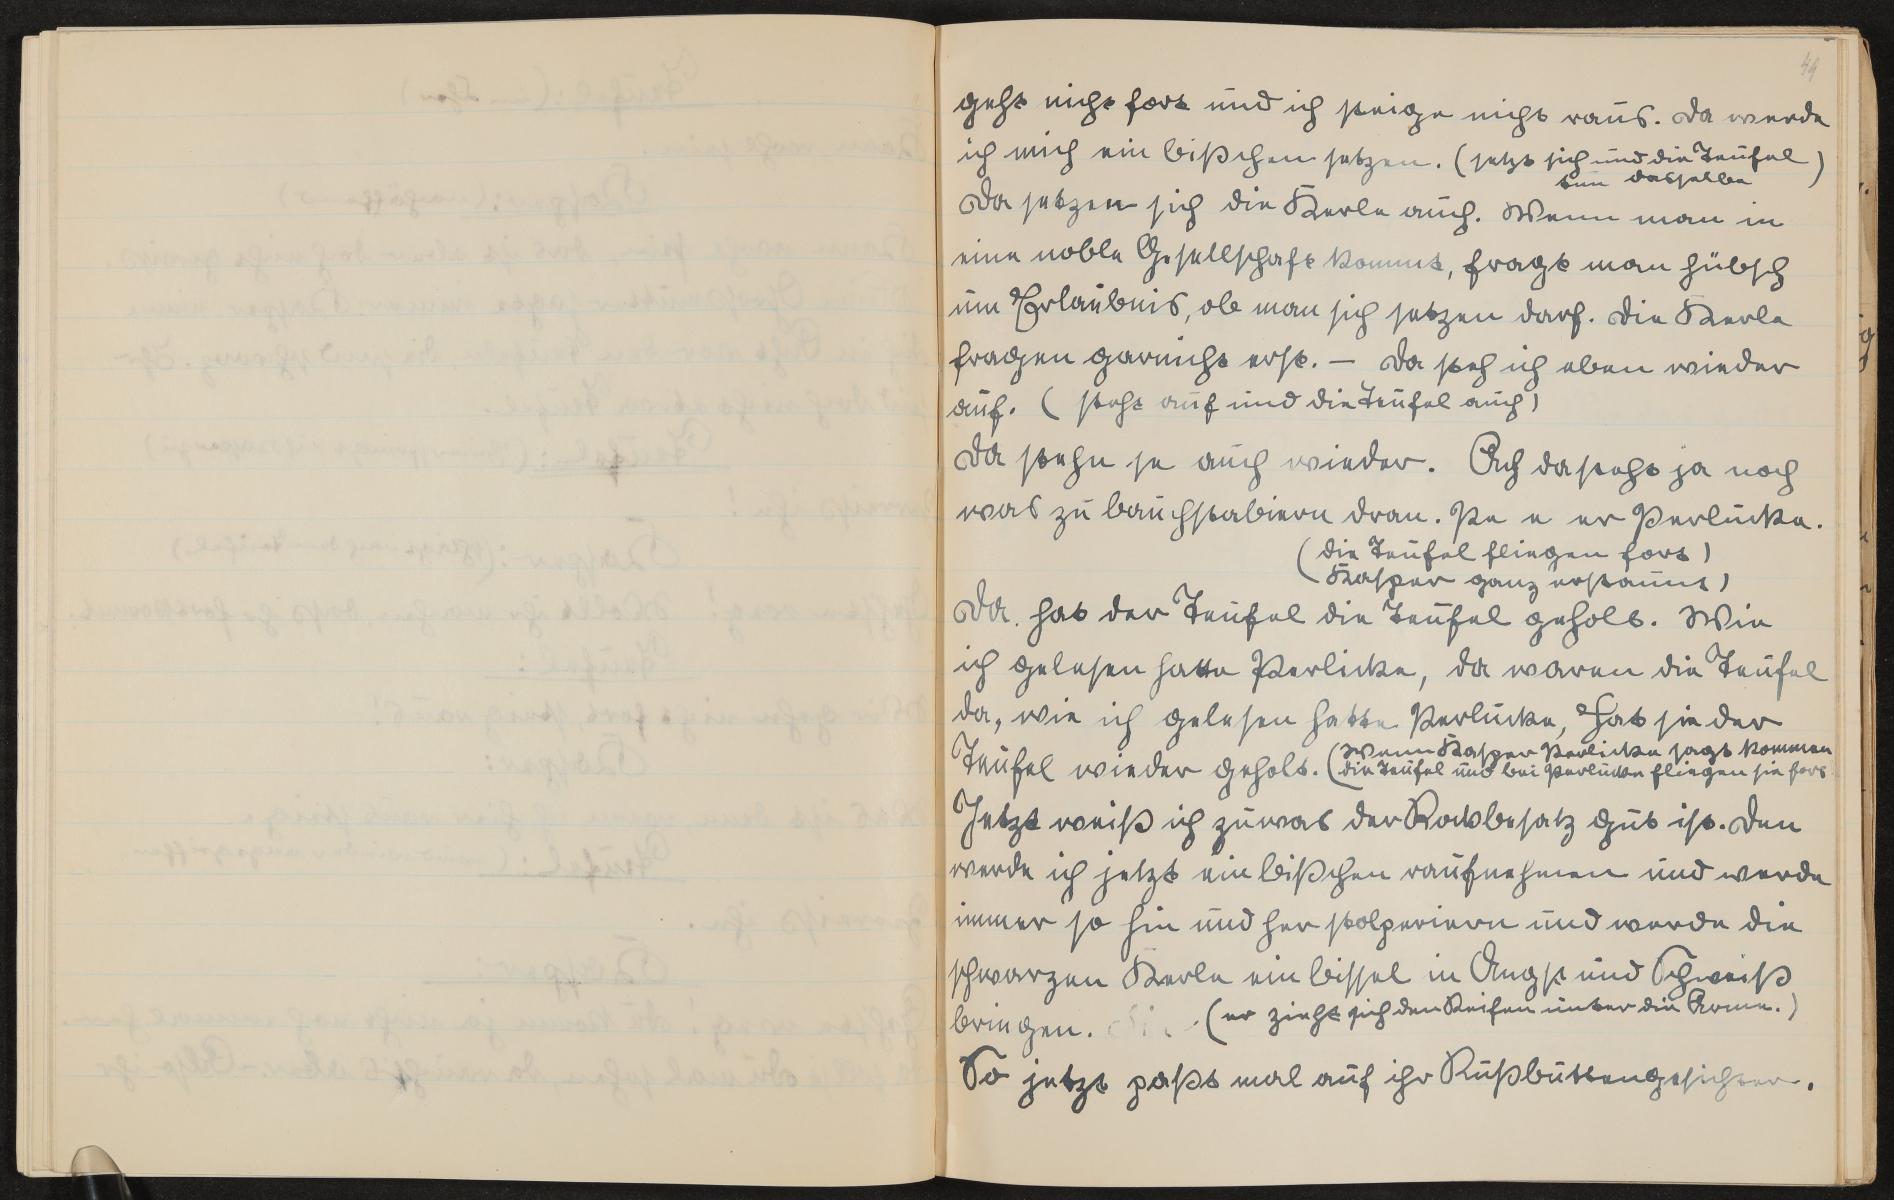 44
geht nicht fort und ich steige nicht raus. Da werde
ich mich ein bißchen setzen. (setzt sich und die Teufel
tun dasselbe)
Da setzen sich die Kerle auch. Wenn man in
eine noble Gesellschaft kommt, fragt man hübsch
um Erlaubnis, ob man sich setzen darf. Die Kerle
fragen garnicht erst. – Da steh ich eben wieder
auf. (steht auf und die Teufel auch)
Da stehn se auch wieder. Ach da steht ja noch
was zu bauchstabiern dran. Pe e er Perlucke.
(die Teufel fliegen fort)
(Kasper ganz erstaunt)
Da hat der Teufel die Teufel geholt. Wie
ich gelesen hatte Perlicke, da waren die Teufel
da, wie ich gelesen hatte Perlucke, hat sie der
Teufel wieder geholt. (Wenn Kasper Perlicke sagt kommen
die Teufel und bei Perlucke fliegen sie fort
Jetzt weiß ich zuwas der Rockbesatz gut ist. Den
werde ich jetzt ein bißchen raufnehmen und werde
immer so hin und her stolperiern und werde die
schwarzen Kerle ein bissel in Angst und Schweiß
bringen. (er zieht sich den Reifen unter die Arme.)
So jetzt paßt mal auf ihr Rußbuttengesichter.